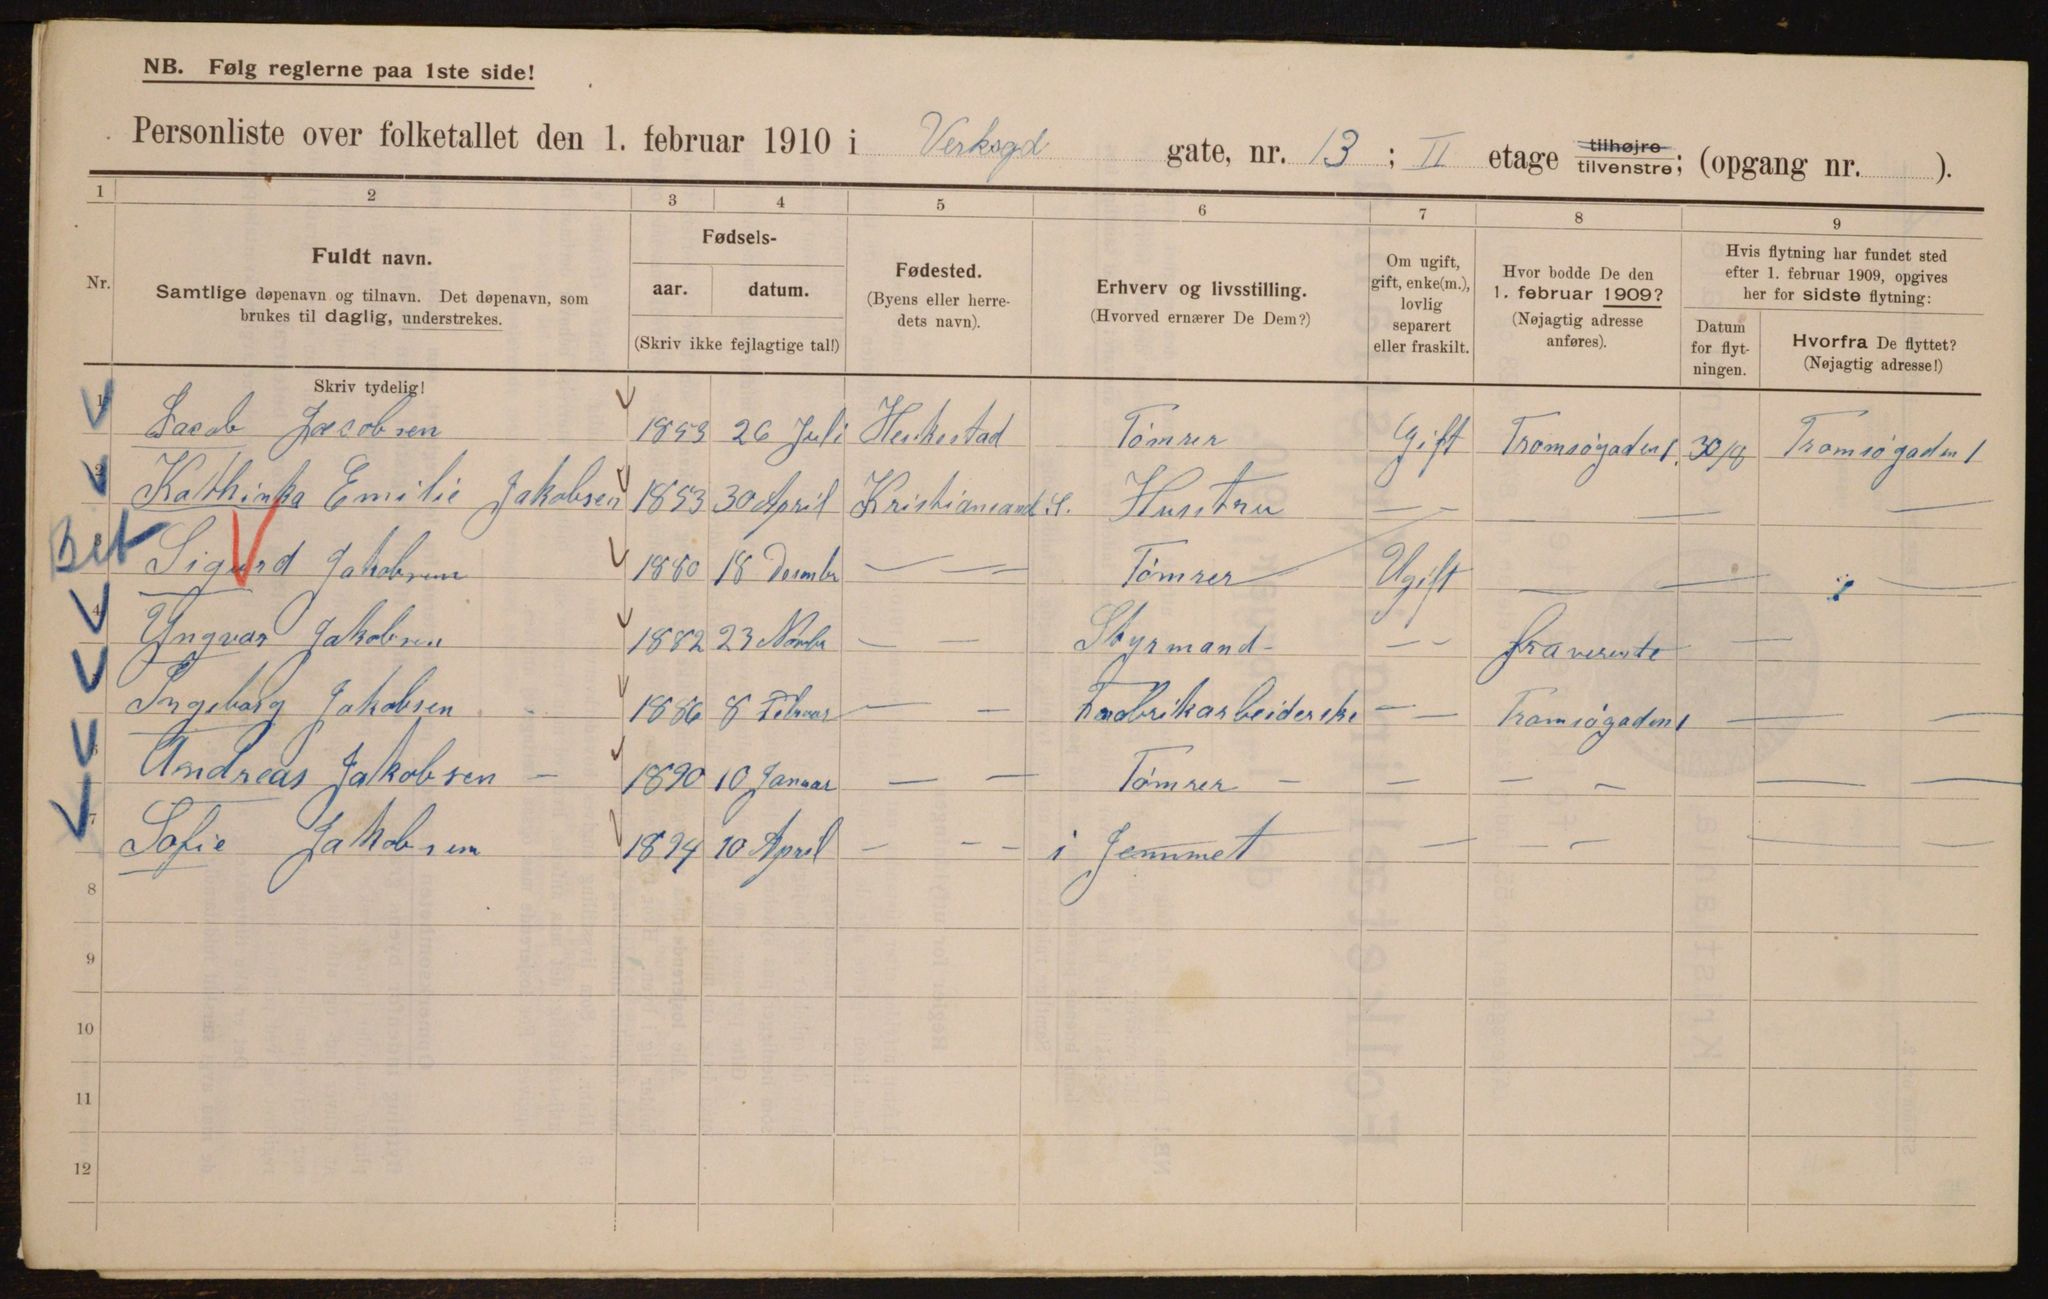 NB. Følg reglerne paa 1ste side!
Personliste over folketallet den 1. februar 1910 i Verksgd gate, nr. 13 ; II etage tilhøjre tilvenstre; (opgang nr. ).
1 2 3 4 5 6 7 8 9
Nr.
Fuldt navn.
Samtlige døpenavn og tilnavn. Det døpenavn, som
brukes til daglig, understrekes.
Skriv tydelig!
Fødsels-
aar. datum.
(Skriv ikke fejlagtige tal!)
Fødested.
(Byens eller herre-
dets navn).
Erhverv og livsstilling.
(Hvorved ernærer De Dem?)
Om ugift,
gift, enke(m.),
lovlig
separert
eller fraskilt.
Hvor bodde De den
1. februar 1909?
(Nøjagtig adresse
anføres).
Hvis flytning har fundet sted
efter 1. februar 1909, opgives
her for sidste flytning:
Datum
for flyt-
ningen.
Hvorfra De flyttet?
(Nøjagtig adresse!)
1 Jacob Jacobsen 1853 26 Juli Heskestad Tømrer Gift Tromsøgaden 1. 30/8 Tromsøgaden 1
2 Kathinka Emilie Jakobsen 1853 30 April Kristiansand S. Husstru — — — — —
Bet Sigurd Jakobsen 1880 18 Desember — — — Tømrer Ugift — — — —
4 Yngvar Jakobsen 1882 23 Novbr — — Styrmand - — - fraverende —
Ingeborg Jakobsen 1886 8 Februar — — Fabrikarbeiderske — — Tromsøgaden 1 — —
6 Andreas Jakobsen — 1890 10 Januar — — Tømrer — — — — — — —
7 Sofie Jakobsen 1894 10 April — — — i Jemmet — — — — —
8
9
10
11
12